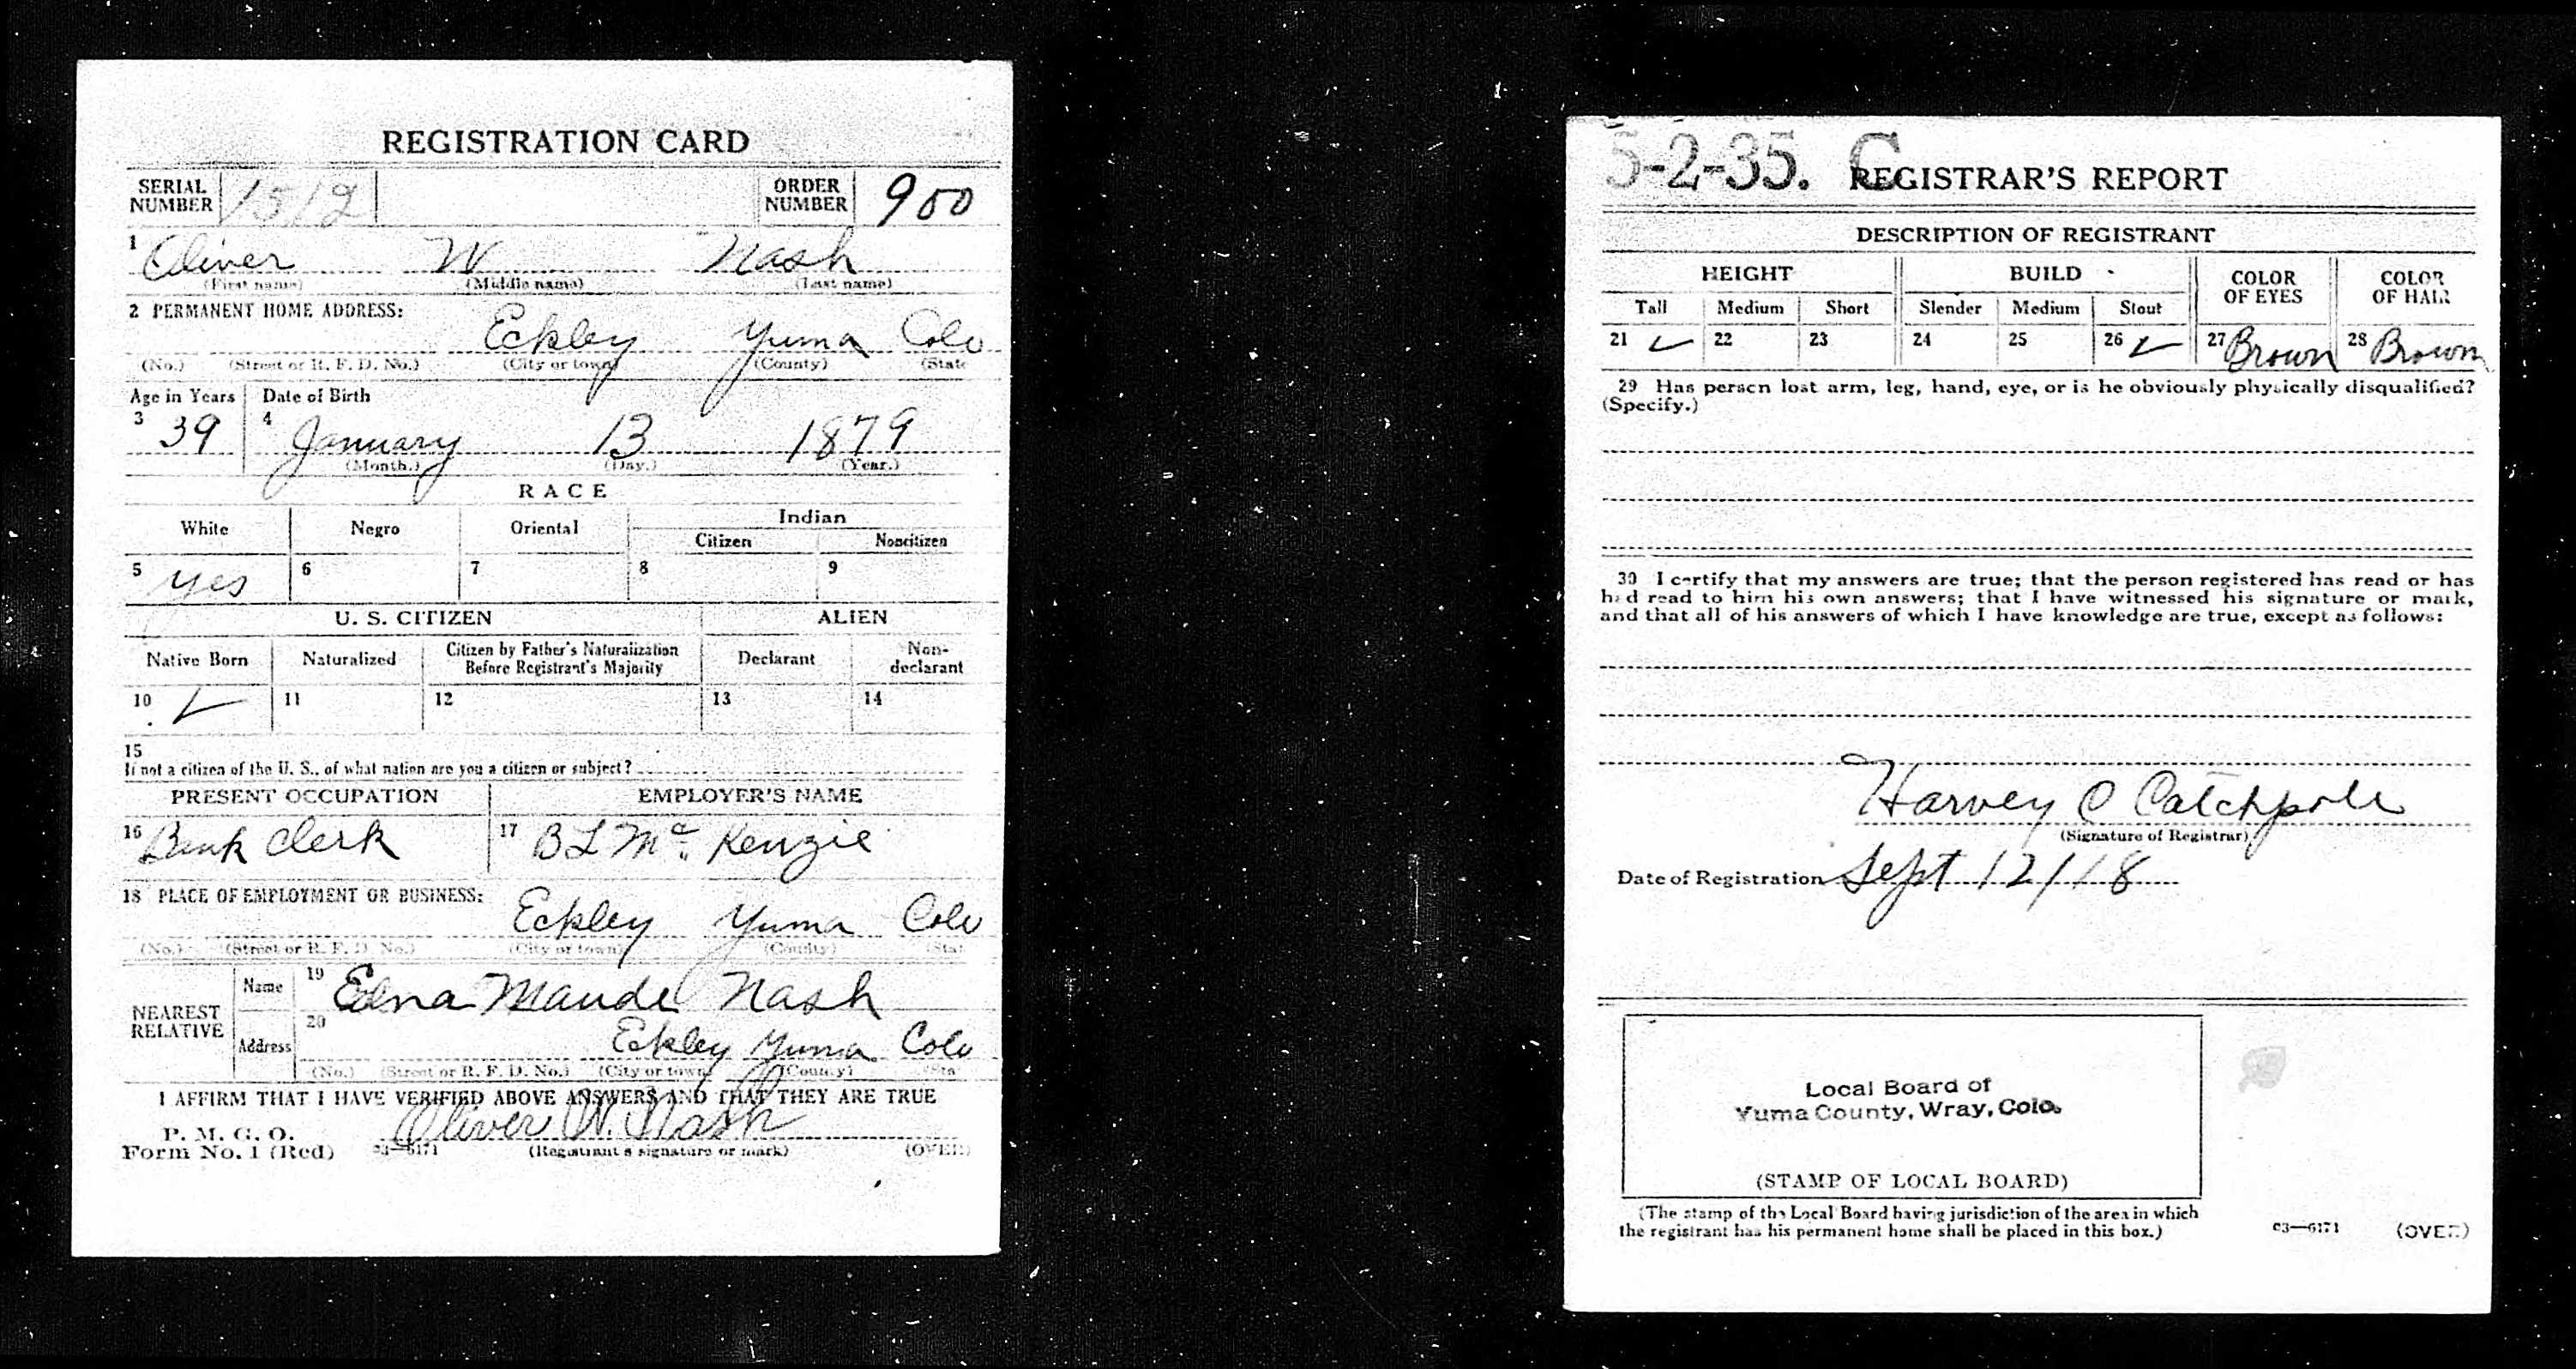 REGISTRATION CARD
SERIAL NUMBER 1512 ORDER NUMBER 900
1 Oliver W Nash
(First name) (Middle name) (Last name)
2 PERMANENT HOME ADDRESS:
Eckley Yuma Colo
(No.) (Street or R. F. D. No.) (City or town) (County) (State
Age in Years Date of Birth
3 39 4 January 13 1879
(Month.) (Day.) (Year.)
RACE
White Negro Oriental Indian
Citizen Noncitizen
5 yes 6 7 8 9
U. S. CITIZEN ALIEN
Native Born Naturalized Citizen by Father's Naturalization Before Registrant's Majority Declarant Non-declarant
10 ✓ 11 12 13 14
15
If not a citizen of the U. S., of what nation are you a citizen or subject?
PRESENT OCCUPATION EMPLOYER'S NAME
16 Bank Clerk 17 B L Mc Kenzie
18 PLACE OF EMPLOYMENT OR BUSINESS:
Eckley Yuma Colo
(No.) (Street or R. F. D. No.) (City or town) (County) (Stat
NEAREST RELATIVE
Name 19 Edna Maude Nash
Address 20 Eckley Yuma Colo
(No.) (Street or R. F. D. No.) (City or town) (County) (Sta
I AFFIRM THAT I HAVE VERIFIED ABOVE ANSWERS AND THAT THEY ARE TRUE
P. M. G. O.
Form No. 1 (Red) 03—6171 Oliver W. Nash
(Registrant's signature or mark) (OVER)
5-2-35. C
REGISTRAR'S REPORT
DESCRIPTION OF REGISTRANT
HEIGHT BUILD COLOR OF EYES COLOR OF HAIR
Tall Medium Short Slender Medium Stout
21 ✓ 22 23 24 25 26 ✓ 27 Brown 28 Brown
29 Has person lost arm, leg, hand, eye, or is he obviously physically disqualified?
(Specify.)
30 I certify that my answers are true; that the person registered has read or has
had read to him his own answers; that I have witnessed his signature or mark,
and that all of his answers of which I have knowledge are true, except as follows:
Harvey C Catchpole
(Signature of Registrar)
Date of Registration Sept 12/18
Local Board of
Yuma County, Wray, Colo.
(STAMP OF LOCAL BOARD)
(The stamp of the Local Board having jurisdiction of the area in which
the registrant has his permanent home shall be placed in this box.)
03—6171 (OVER)